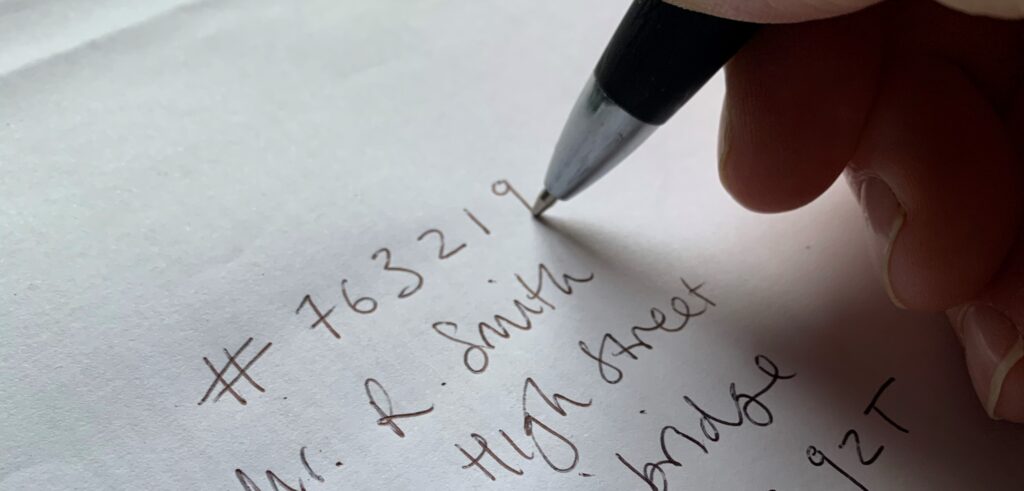 # 763219
Mr. R. Smith
High Street
bridge
9ZT